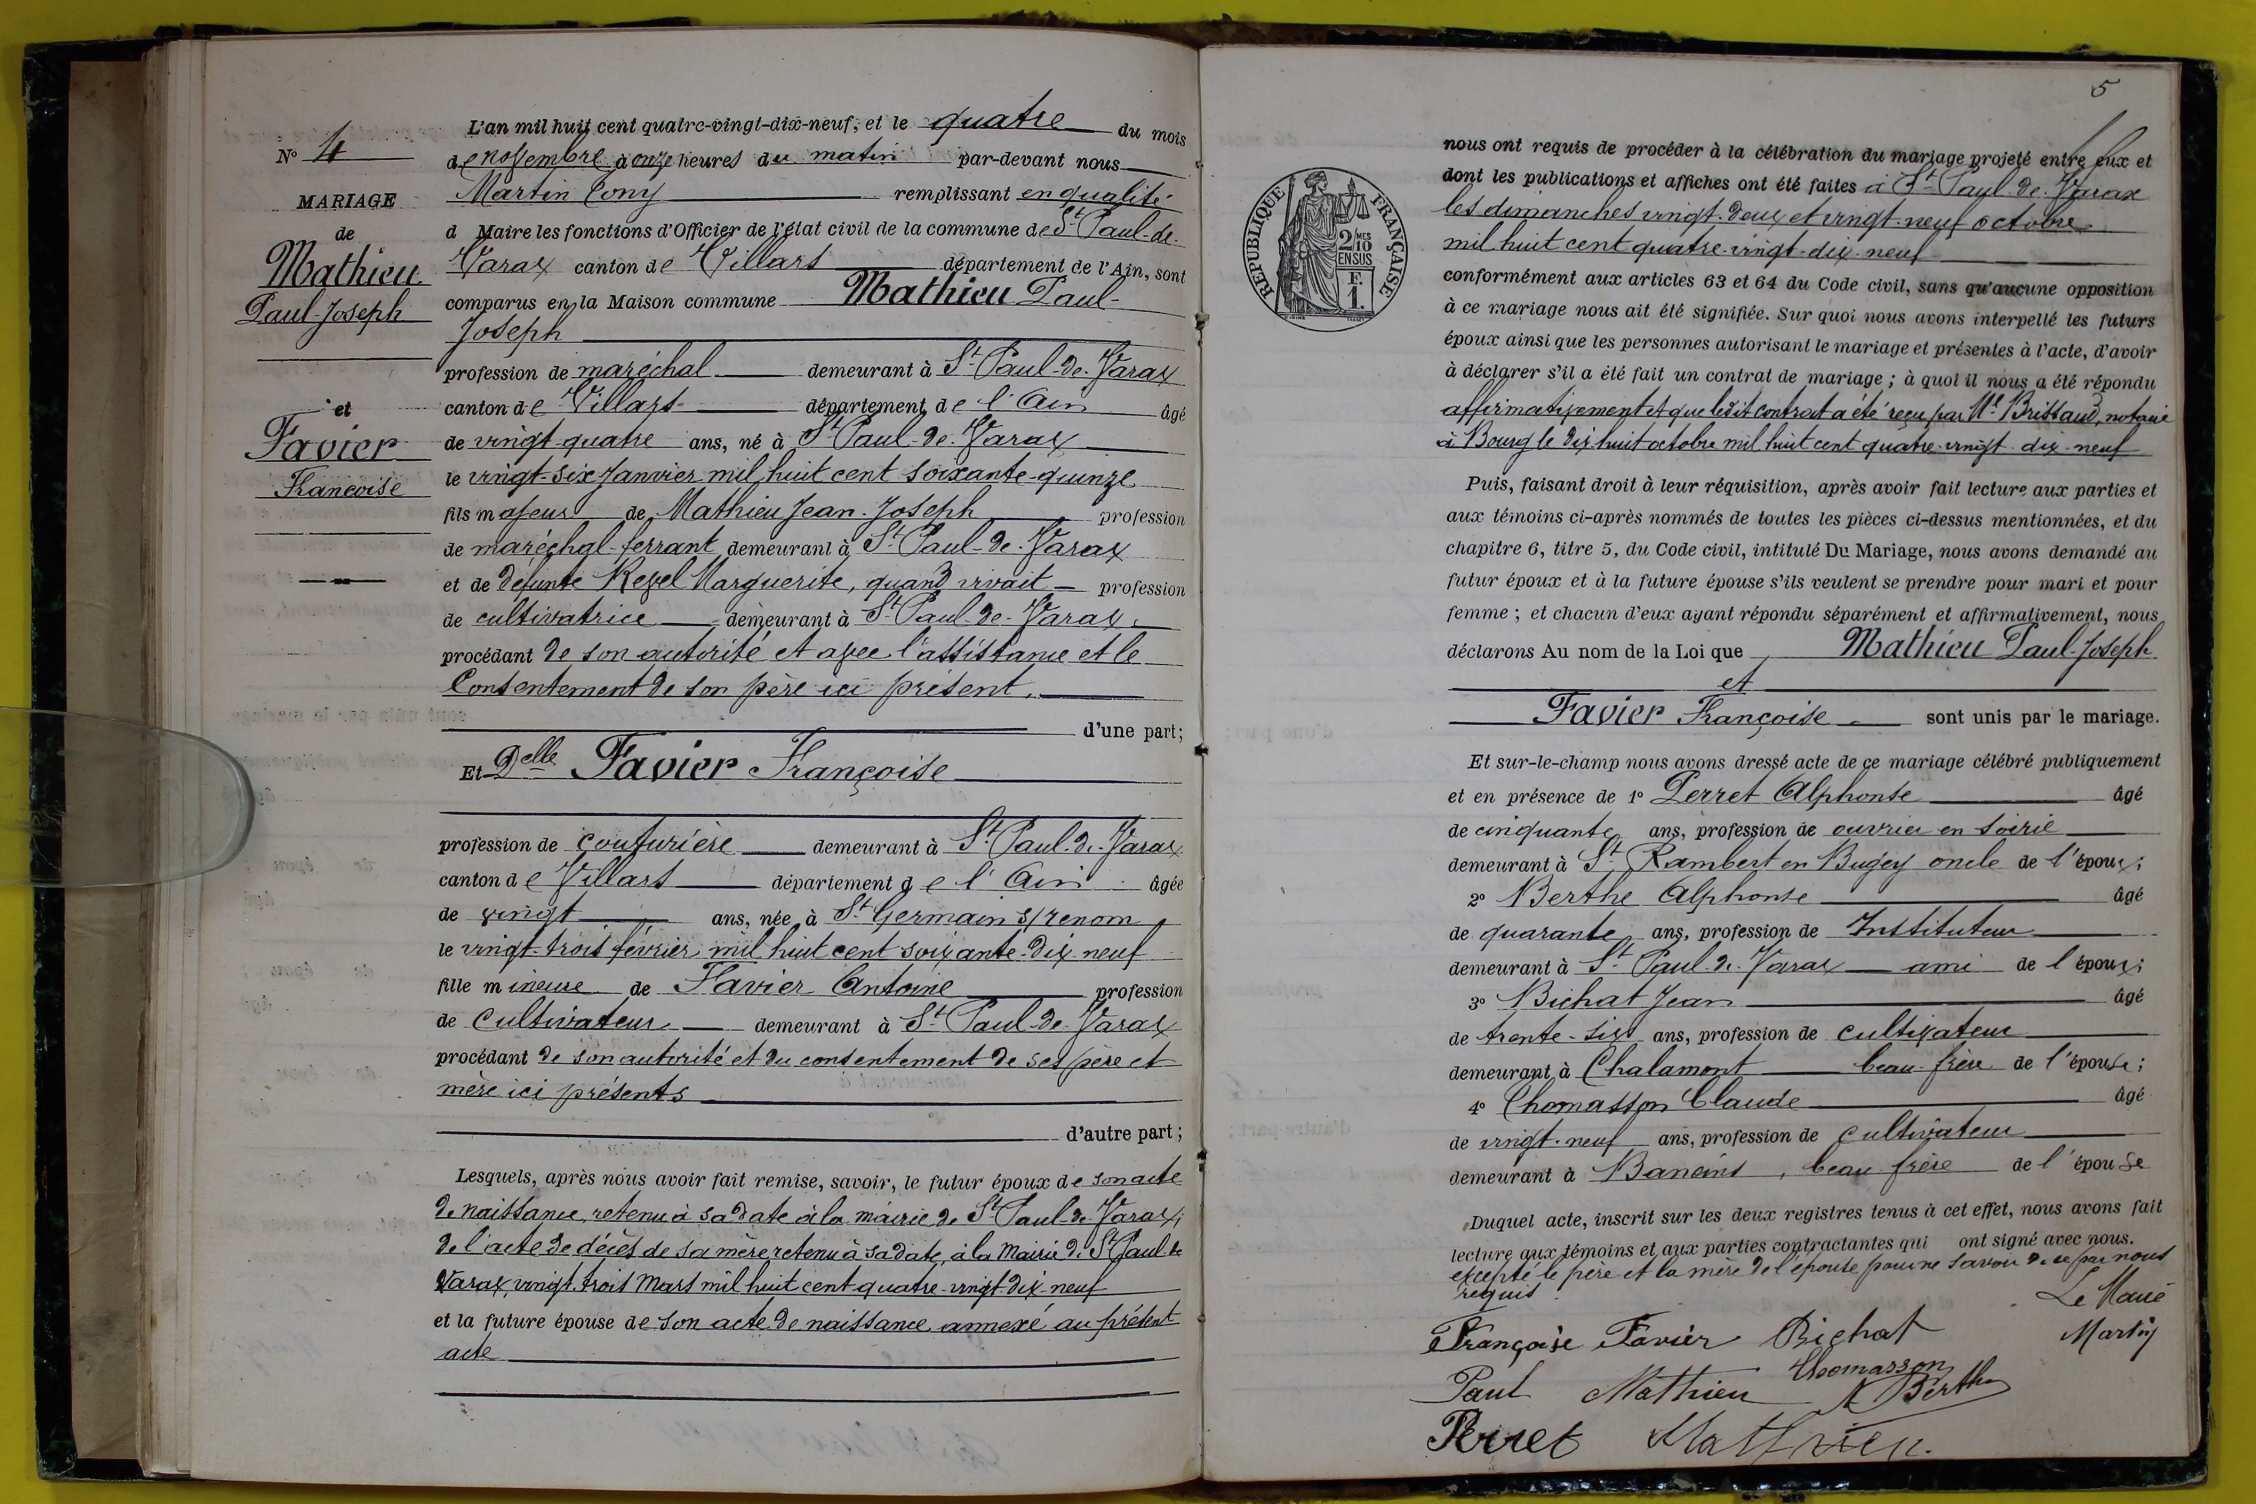 L'an mil huit cent quatre-vingt-dix-neuf, et le quatre du mois
N° 4
de novembre à onze heures du matin par-devant nous
MARIAGE
Martin Cony remplissant en qualité
de
d Maire les fonctions d'Officier de l'état civil de la commune de St Paul-de-
Mathieu
Varax canton de Villars département de l'Ain, sont
Paul-Joseph
comparus en la Maison commune Mathieu Paul-
Joseph
profession de maréchal demeurant à St Paul-de-Varax
et
canton de Villars département de l'Ain âgé
Favier
de vingt-quatre ans, né à St Paul-de-Varax
Françoise
le vingt-six Janvier mil huit cent soixante-quinze
fils majeur de Mathieu Jean-Joseph profession
de maréchal-ferrant demeurant à St Paul-de-Varax
et de défunte Revel Marguerite, quand vivait profession
de cultivatrice demeurant à St Paul-de-Varax,
procédant de son autorité et avec l'assistance et le
Consentement de son père ici présent,
d'une part;
Et Delle Favier Françoise
profession de couturière demeurant à St Paul-de-Varax
canton de Villars département de l'Ain âgée
de vingt ans, née à St Germain s/renom
le vingt-trois février mil huit cent soixante-dix-neuf
fille mineure de Favier Antoine profession
de Cultivateur demeurant à St Paul-de-Varax
procédant de son autorité et du consentement de ses père et
mère ici présents
d'autre part;
Lesquels, après nous avoir fait remise, savoir, le futur époux de son acte
de naissance, retenu à sa date à la mairie de St Paul-de-Varax;
de l'acte de décès de sa mère retenu à sa date, à la Mairie de St Paul de
Varax, vingt-trois Mars mil huit cent quatre-vingt-dix-neuf
et la future épouse de son acte de naissance annexé au présent
acte
5
nous ont requis de procéder à la célébration du mariage projeté entre eux et
dont les publications et affiches ont été faites à St Paul-de-Varax
les dimanches vingt-deux et vingt-neuf octobre
mil huit cent quatre-vingt-dix-neuf
RÉPUBLIQUE FRANÇAISE
2/10 MES
EN SUS
F.
1.
conformément aux articles 63 et 64 du Code civil, sans qu'aucune opposition
à ce mariage nous ait été signifiée. Sur quoi nous avons interpellé les futurs
époux ainsi que les personnes autorisant le mariage et présentes à l'acte, d'avoir
à déclarer s'il a été fait un contrat de mariage; à quoi il nous a été répondu
affirmativement et que ledit contrat a été reçu par Me Brissaud, notaire
à Bourg le dix-huit octobre mil huit cent quatre-vingt-dix-neuf
Puis, faisant droit à leur réquisition, après avoir fait lecture aux parties et
aux témoins ci-après nommés de toutes les pièces ci-dessus mentionnées, et du
chapitre 6, titre 5, du Code civil, intitulé Du Mariage, nous avons demandé au
futur époux et à la future épouse s'ils veulent se prendre pour mari et pour
femme; et chacun d'eux ayant répondu séparément et affirmativement, nous
déclarons Au nom de la Loi que Mathieu Paul-Joseph
et
Favier Françoise sont unis par le mariage.
Et sur-le-champ nous avons dressé acte de ce mariage célébré publiquement
et en présence de 1° Perret Alphonse âgé
de cinquante ans, profession de ouvrier en soirie
demeurant à St Rambert en Bugey oncle de l'époux;
2° Berthe Alphonse âgé
de quarante ans, profession de Instituteur
demeurant à St Paul-de-Varax ami de l'époux;
3° Bichat Jean âgé
de trente-six ans, profession de cultivateur
demeurant à Chalamont beau-frère de l'épouse;
4° Thomasson Claude âgé
de vingt-neuf ans, profession de cultivateur
demeurant à Baneins, beau-frère de l'épouse
Duquel acte, inscrit sur les deux registres tenus à cet effet, nous avons fait
lecture aux témoins et aux parties contractantes qui ont signé avec nous.
excepté le père et la mère de l'épouse pour ne savoir de ce par nous
requis
Le Maire
Françoise Favier Bichat Martin
Thomasson
Paul Mathieu A Berthe
Perret Mathieu